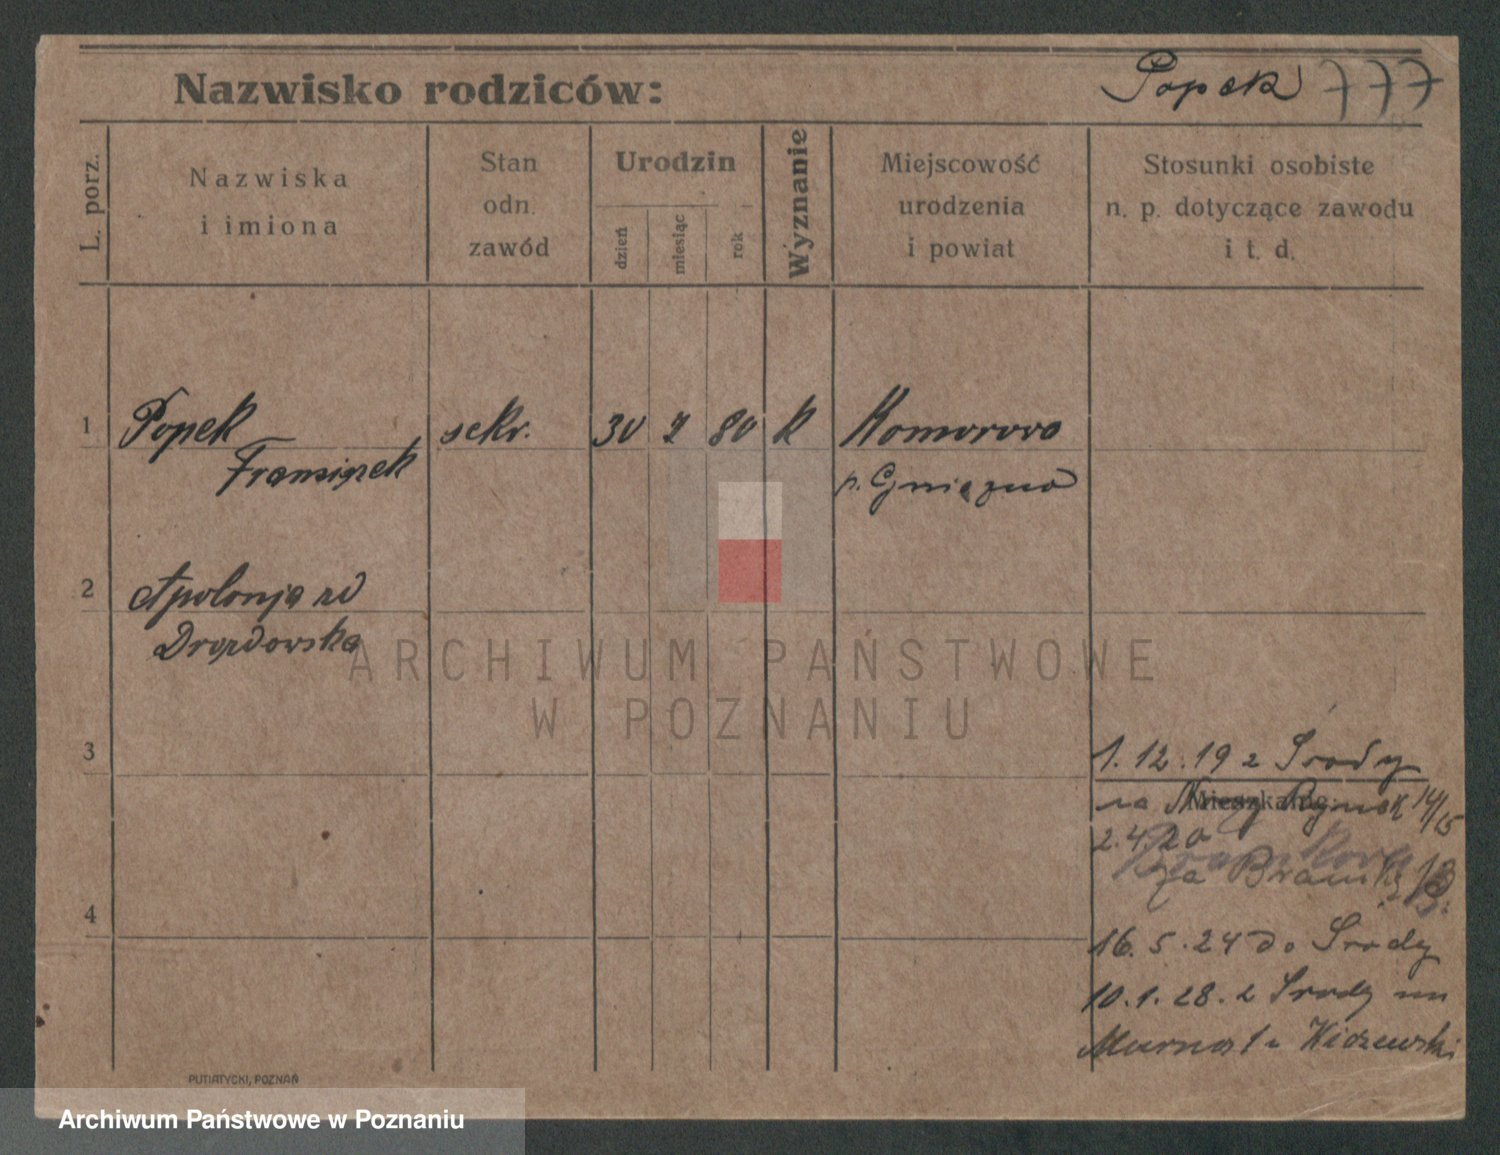 Nazwisko rodziców: Popek 777
L. porz.
Nazwiska
i imiona
Stan
odn.
zawód
Urodzin
dzień
miesiąc
rok
Wyznanie
Miejscowość
urodzenia
i powiat
Stosunki osobiste
n. p. dotyczące zawodu
i t. d.
1 Popek sekr. 30 7 80 k Komorowo
Franciszek p. Gniezno
2 Apolonja
Drozdowska
ARCHIWUM PAŃSTWOWE
W POZNANIU
3
1.12.19 z Środy
Mieszkanie:
na Rynek 14/15
2.4.20
za 13
4
16.5.24 do Środy
10.1.28. z Środy
PUTIATYCKI, POZNAŃ
Archiwum Państwowe w Poznaniu